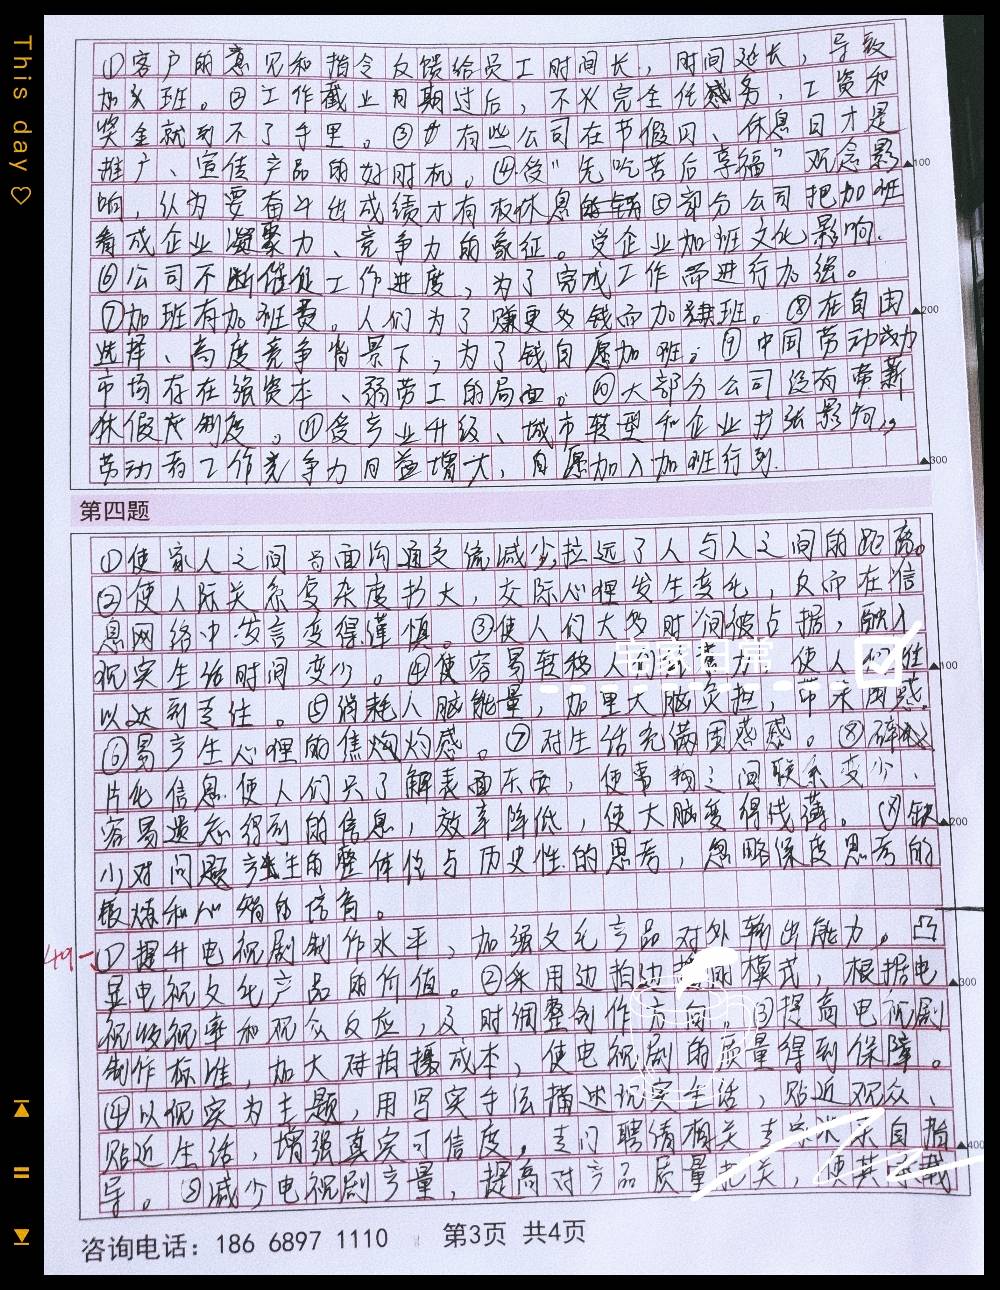 This day ♡
①客户的意见和指令反馈给员工时间长，时间延长，导致
加班。②工作截止日期过后，不完全任务，工资和
奖金就到不了手里。③有些公司在节假日、休息日才是
推广、宣传产品的好时机。④受“先吃苦后享福”观念影
响，认为要奋斗出成绩才有权休息⑤部分公司把加班
看成企业凝聚力、竞争力的象征。受企业加班文化影响。
⑥公司不断催促工作进度，为了完成工作而进行加强。
⑦加班有加班费。人们为了赚更多钱而加班。⑧在自由
选择、高度竞争背景下，为了钱自愿加班。⑨中国劳动力
市场存在强资本、弱劳工的局面。⑩大部分公司没有带薪
休假制度。⑪受产业升级、城市转型和企业扩张影响，
劳动者工作竞争力日益增大，自愿加入加班行列.
▲100
▲200
▲300
第四题
①使家人之间当面沟通交流减少,拉远了人与人之间的距离。
②使人际关系复杂度扩大，交际心理发生变化，反而在信
息网络中发言变得谨慎。③使人们大多时间被占据，融入
现实生活时间变少。④使容易转移人们注意力，使人们难
以达到专注。⑤消耗人脑能量，加重大脑负担，带来困惑。
⑥易产生心理的焦灼感。⑦对生活充满困惑感。⑧碎
片化信息使人们只了解表面东西，使事物之间联系变少、
容易遗忘得到的信息，效率降低，使大脑变得浅薄。⑨缺
少对问题产生的整体性与历史性的思考，忽略深度思考的
锻炼和心绪的培育。
49-
①提升电视剧制作水平，加强文化产品对外输出能力。凸
显电视文化产品的价值。②采用边拍边播的模式，根据电
视收视率和观众反应，及时调整创作方向。③提高电视剧
制作标准，加大拍摄成本，使电视剧的质量得到保障。
④以现实为主题，用写实手法描述现实生活，贴近观众、
贴近生活，增强真实可信度。专门聘请相关专家来亲自指
导。⑤减少电视剧产量，提高对产品质量把关，使其承载
▲100
▲200
▲300
▲400
咨询电话：186 6897 1110 第3页 共4页